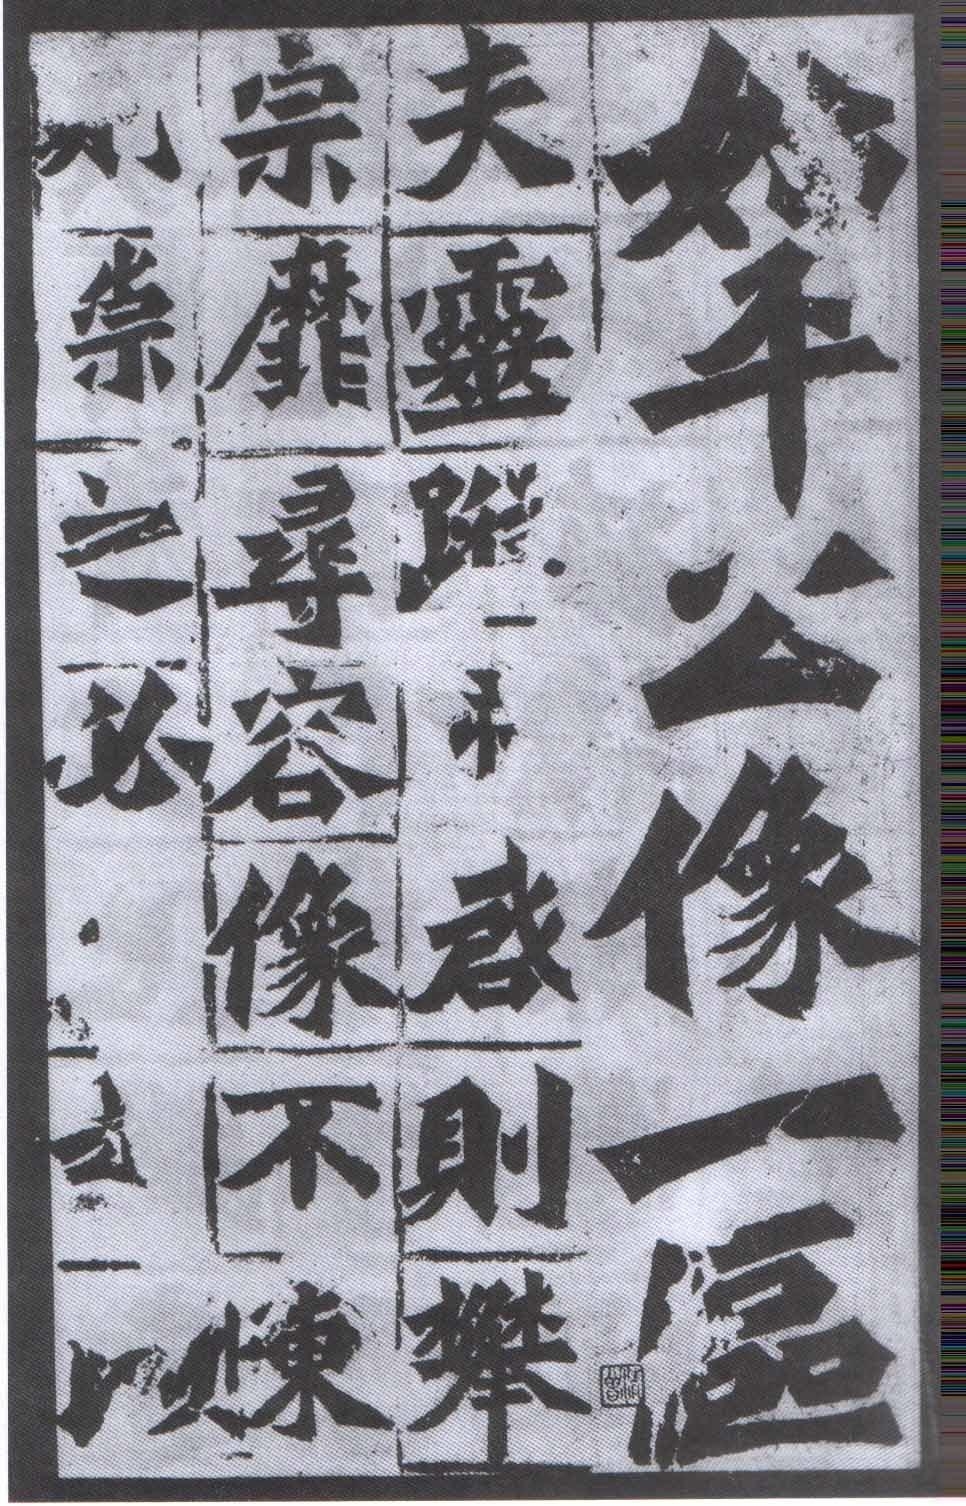 始平公像一區
夫靈蹤啓則攀
宗靡尋容像不陳
崇之必